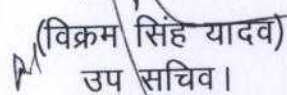 (विक्रम सिंह यादव)
उप सचिव।